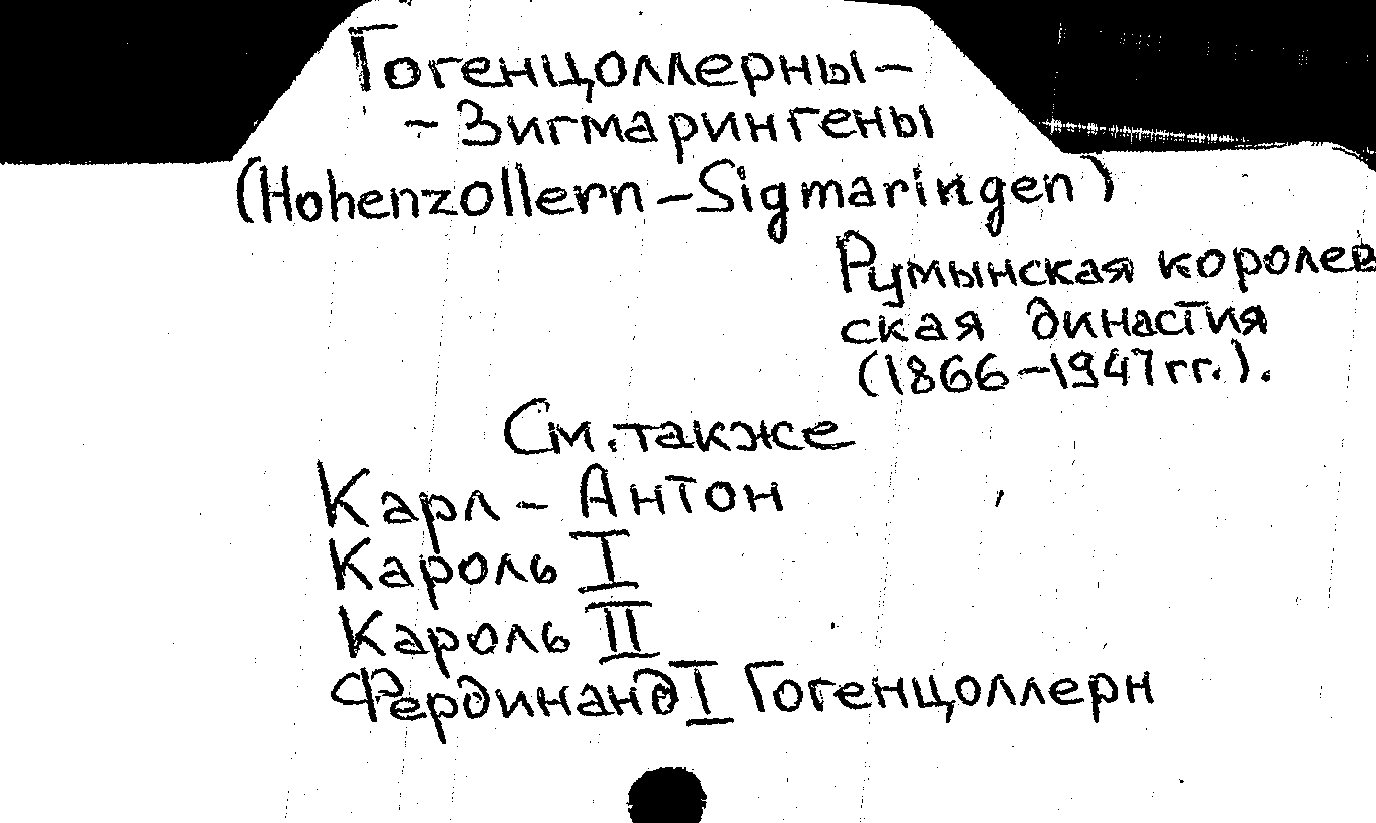 Гогенцоллерны-
- Зигмарингены
(Hohenzollern-Sigmaringen)
Румынская королев
ская династия
(1866-1947гг.).
См. также
Карл - Антон
Кароль I
Кароль II
Фердинанд I Гогенцоллерн